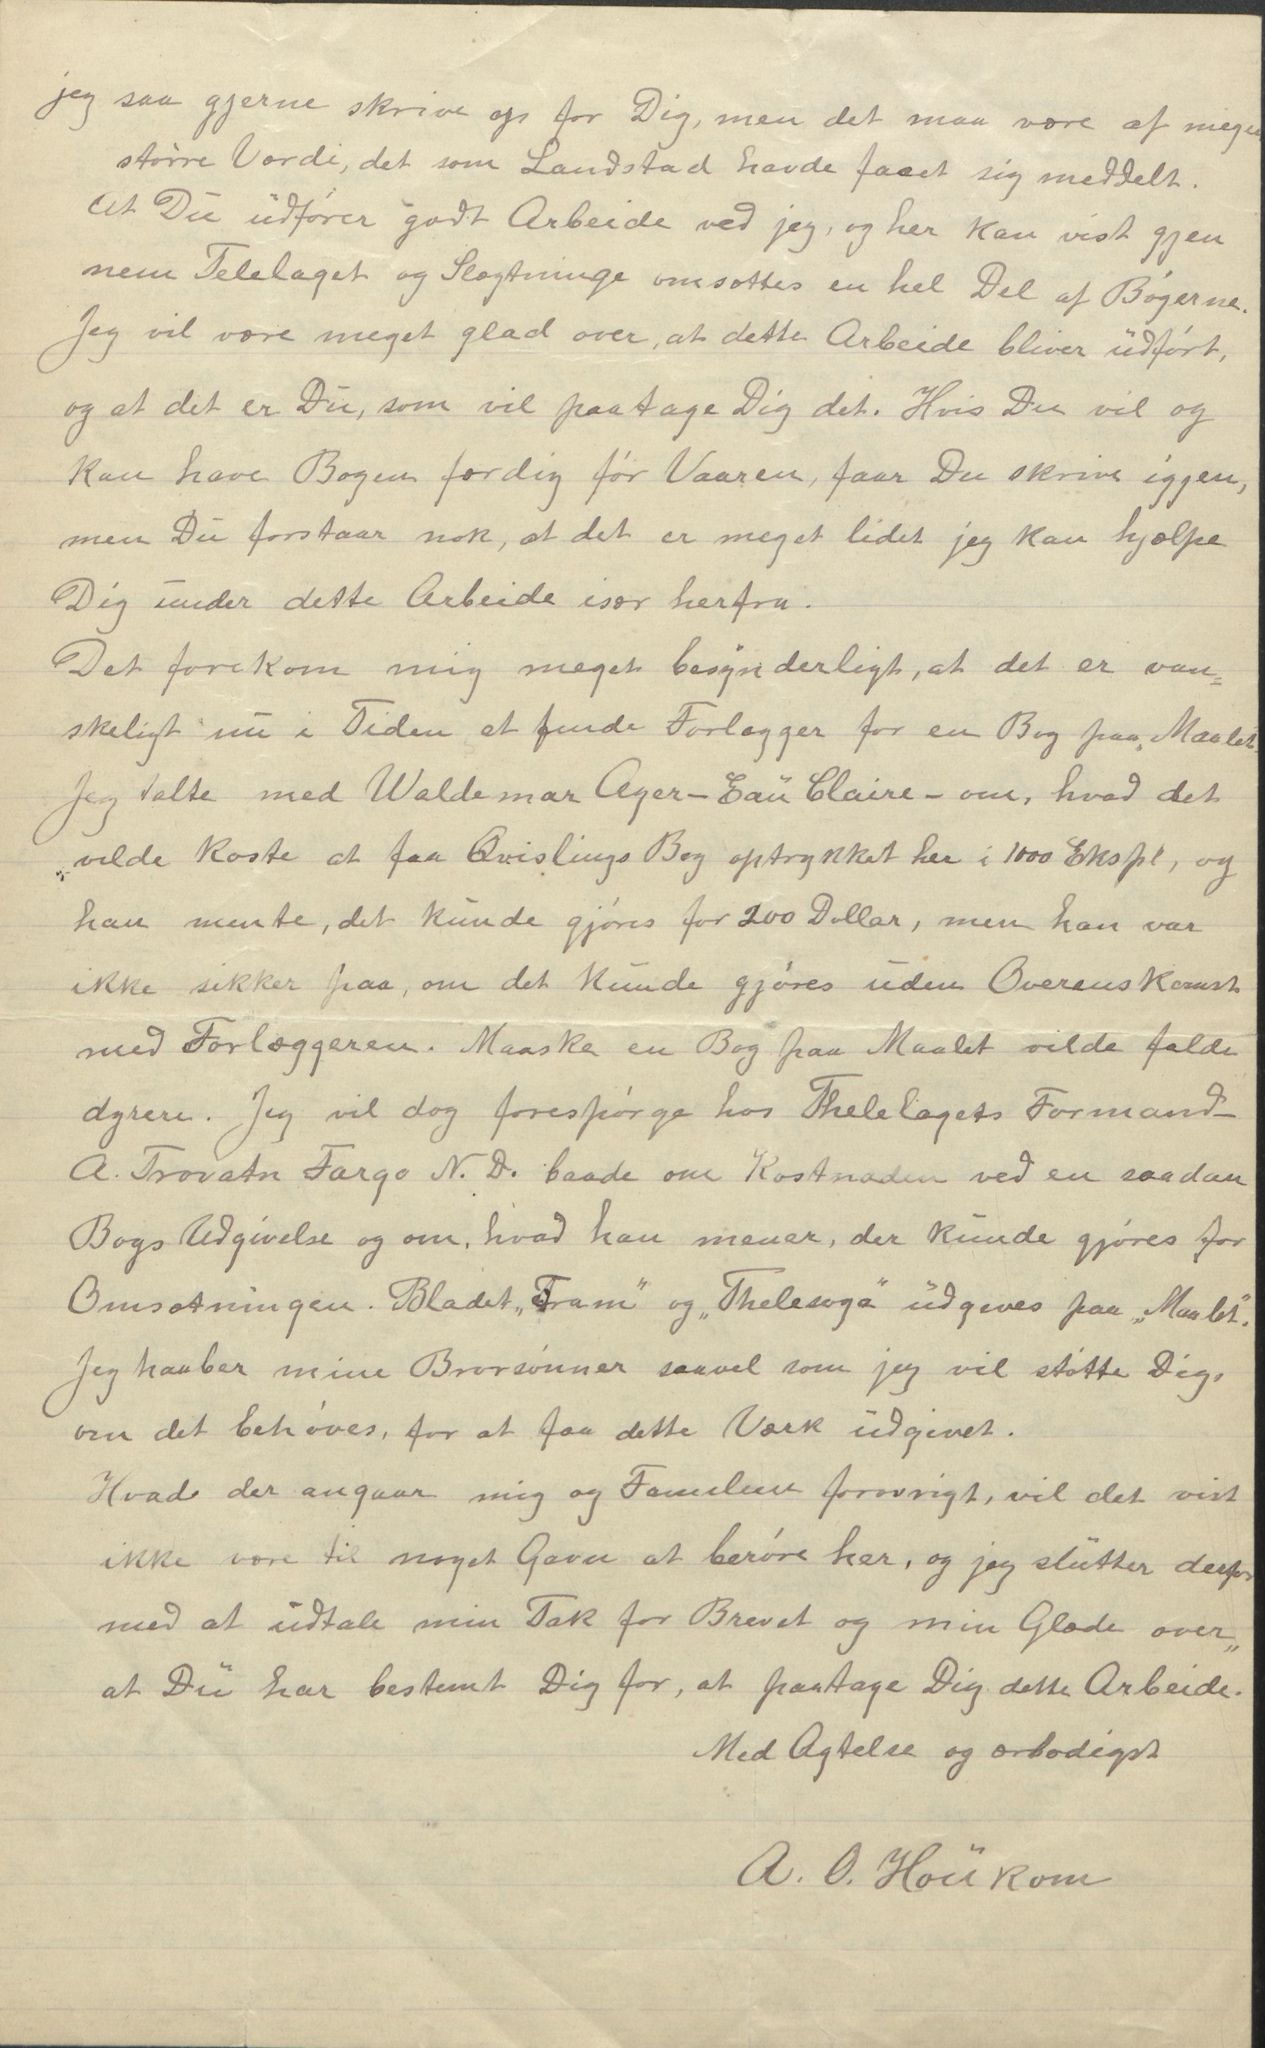 jeg saa gjerne skrive op for Dig, men det maa være af megen
større Værdi, det som Landstad havde faaet sig meddelt.
At Du udfører godt Arbeide ved jeg, og her kan vist gjen
nem Telelaget og Slægtninge omsættes en hel Del af Bøgerne.
Jeg vil være meget glad over, at dette Arbeide bliver udført,
og at det er Du, som vil paatage Dig det. Hvis Du vil og
kan have Bogen færdig før Vaaren, faar Du skrive igjen,
men Du forstaar nok, at det er meget lidet jeg kan hjælpe
Dig under dette Arbeide især herfra.
Det forekom mig meget besynderligt, at det er van=
skeligt nu i Tiden at finde Forlægger for en Bog paa „Maalet"
Jeg talte med Waldemar Ager – Eau Claire – om, hvad det
vilde koste at faa Qvislings Bog optrykket her i 1000 Ekspl, og
han mente, det kunde gjøres for 200 Dollar, men han var
ikke sikker paa, om det kunde gjøres uden Overenskomst
med Forlæggeren. Maaske en Bog paa Maalet vilde falde
dyrere. Jeg vil dog forespørge hos Thelelagets Formand –
A. Trovatn Fargo N. D. baade om Kostnaden ved en saadan
Bogs Udgivelse og om, hvad han mener, der kunde gjøres for
Omsætningen. Bladet „Fram" og „Thelesoga" udgives paa „Maalet".
Jeg haaber mine Brorsønner saavel som jeg vil støtte Dig,
om det behøves, for at faa dette Værk udgivet.
Hvad der angaar mig og Familien forøvrigt, vil det vist
ikke være til noget Gavn at berøre her, og jeg slutter derfor
med at udtale min Tak for Brevet og min Glæde over,
at Du har bestemt Dig for, at paatage Dig dette Arbeide.
Med Agtelse og ærbødigst
A. O. Houkom